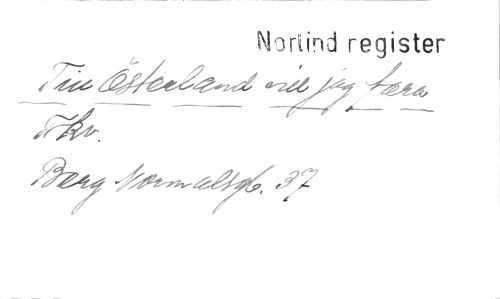 Norlind register
Till Österland vill jag fara
Tkv.
Berg Normalsgb. 37